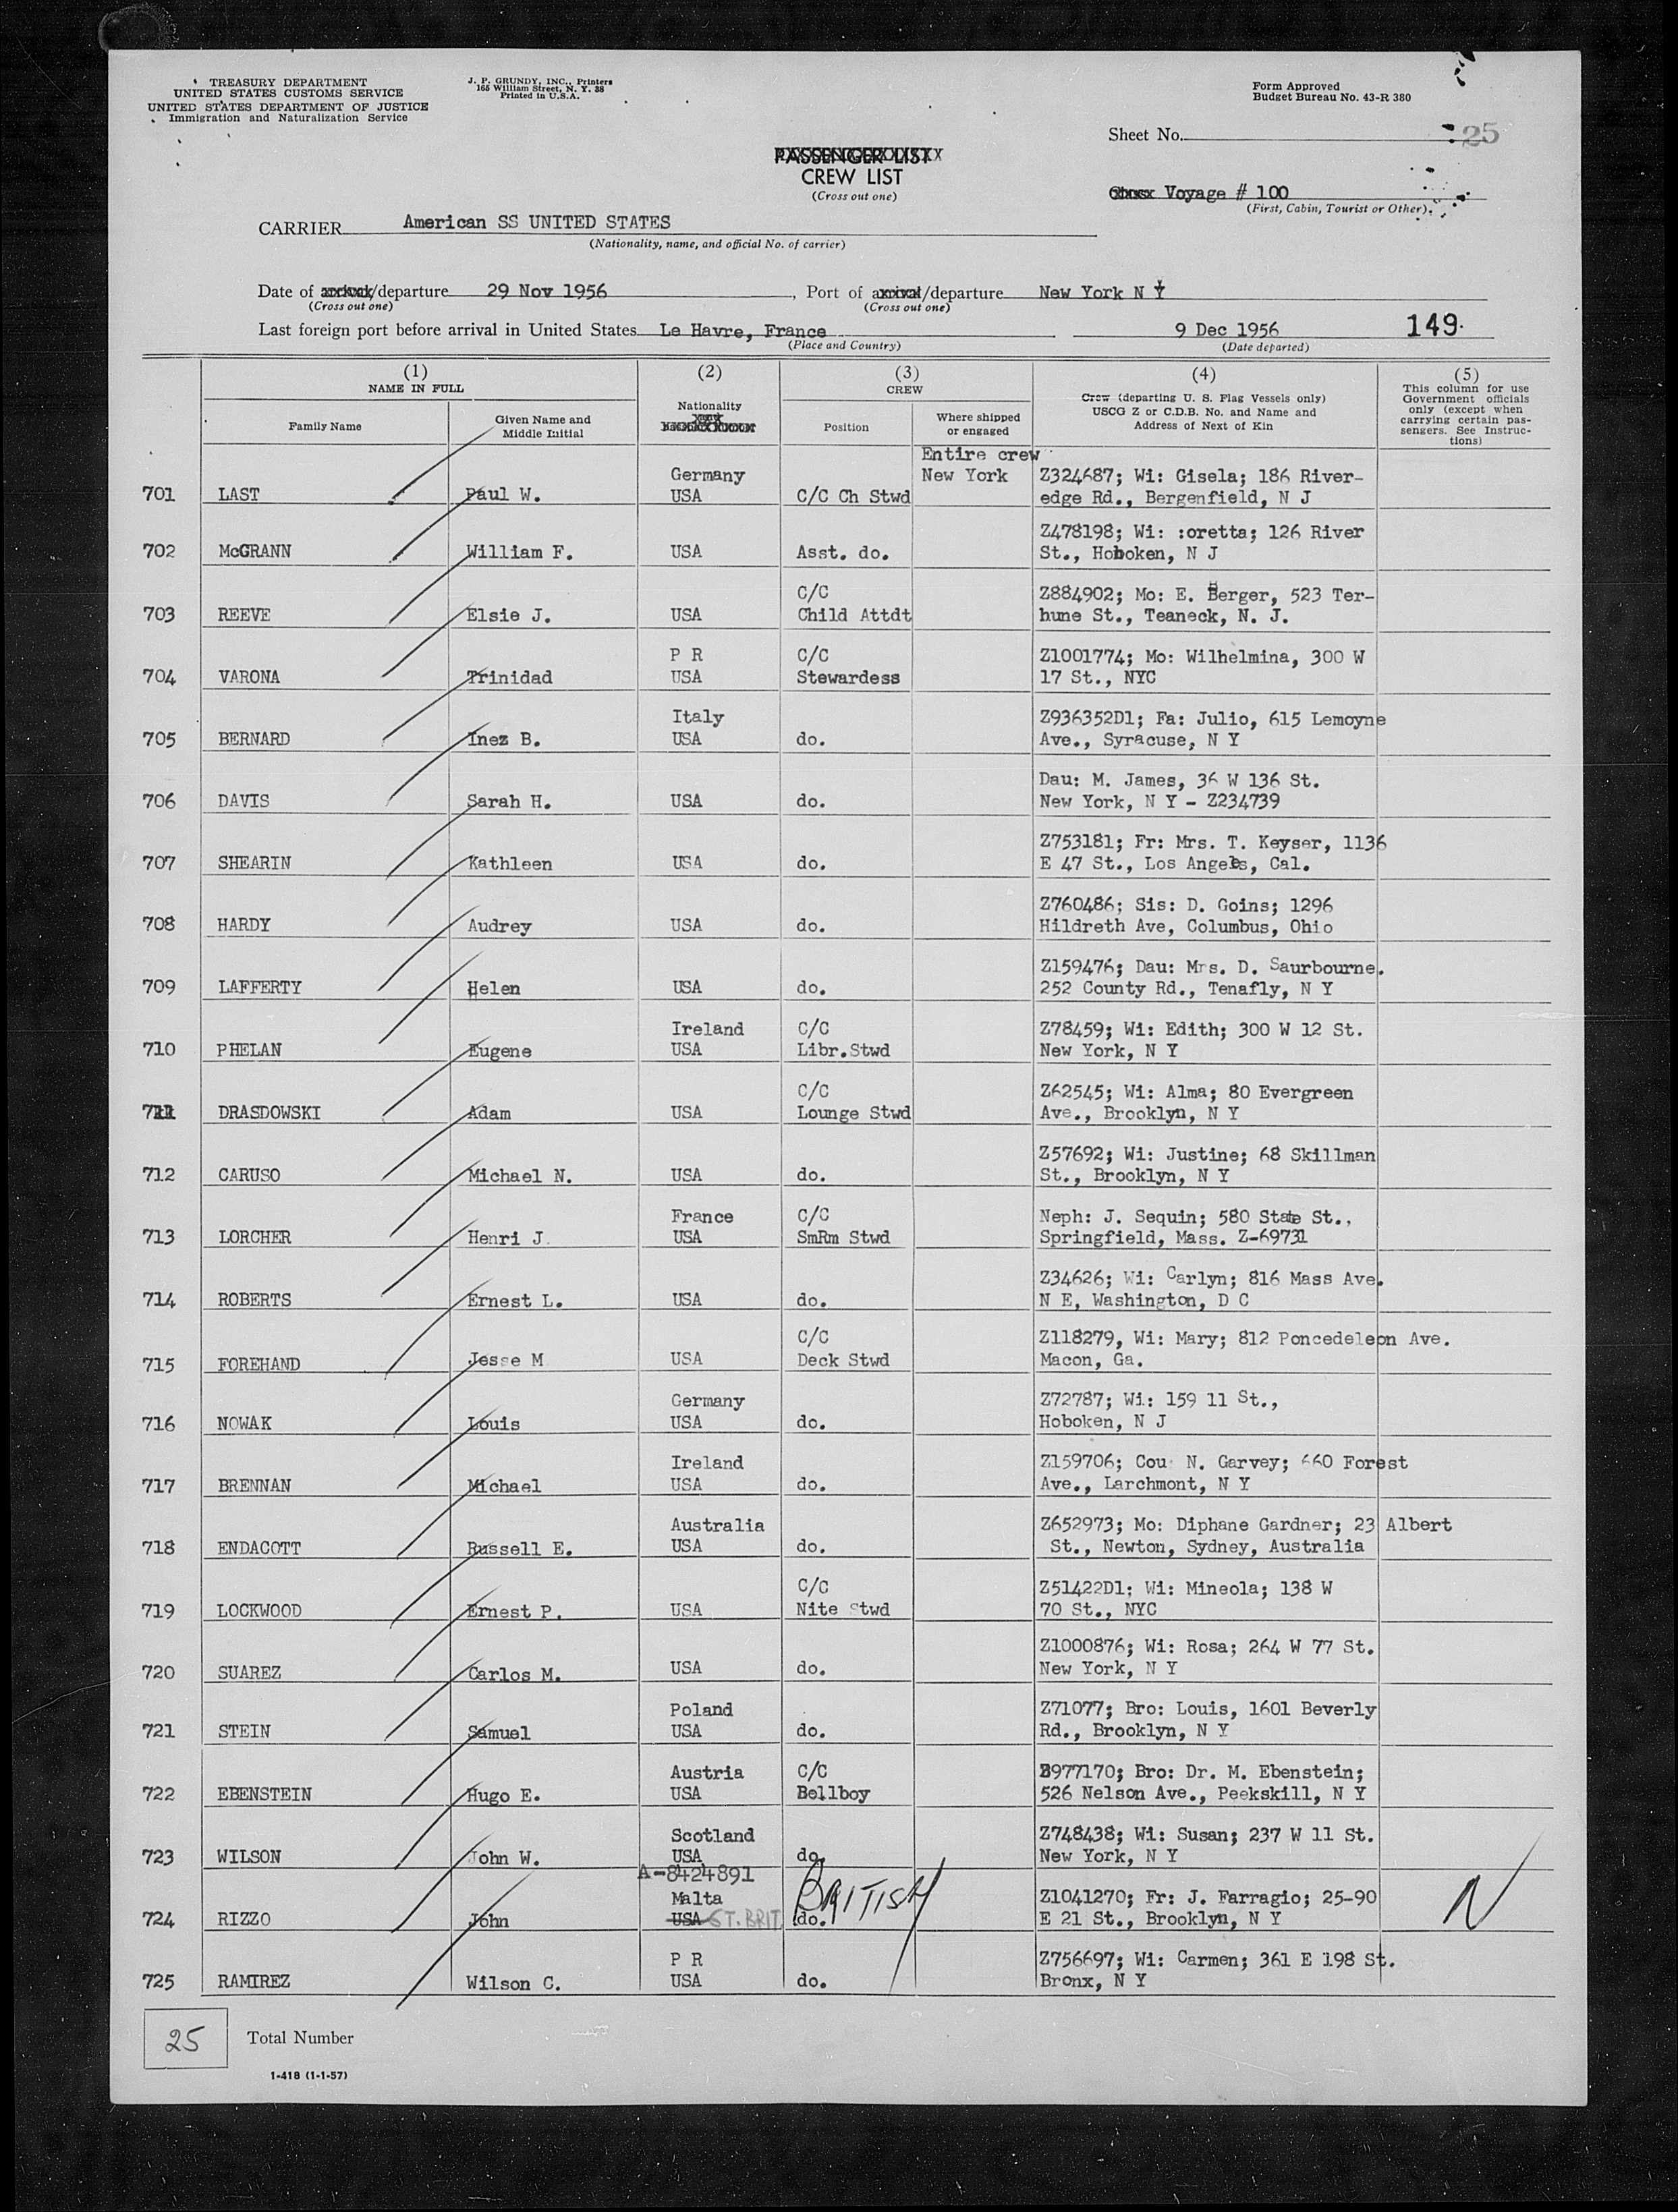 TREASURY DEPARTMENT
UNITED STATES CUSTOMS SERVICE
UNITED STATES DEPARTMENT OF JUSTICE
Immigration and Naturalization Service
J. P. GRUNDY, INC., Printers
165 William Street, N. Y. 38
Printed in U.S.A.
Form Approved
Budget Bureau No. 43-R 380
Sheet No. 25
PASSENGER LIST
CREW LIST
(Cross out one)
Class Voyage # 100
(First, Cabin, Tourist or Other)
CARRIER American SS UNITED STATES
(Nationality, name, and official No. of carrier)
Date of arrival/departure 29 Nov 1956, Port of arrival/departure New York N Y
(Cross out one) (Cross out one)
Last foreign port before arrival in United States Le Havre, France 9 Dec 1956 149
(Place and Country) (Date departed)
(1) (2) (3) (4) (5)
NAME IN FULL
Family Name
Given Name and
Middle Initial
Nationality
CREW
Position
Where shipped
or engaged
Crew (departing U. S. Flag Vessels only)
USCG Z or C.D.B. No. and Name and
Address of Next of Kin
This column for use
Government officials
only (except when
carrying certain pas-
sengers. See Instruc-
tions)
Entire crew
Germany New York Z324687; Wi: Gisela; 186 River-
701 LAST Paul W. USA C/C Ch Stwd edge Rd., Bergenfield, N J
Z478198; Wi: :oretta; 126 River
702 McGRANN William F. USA Asst. do. St., Hoboken, N J
C/C Z884902; Mo: E. Berger, 523 Ter-
703 REEVE Elsie J. USA Child Attdt hune St., Teaneck, N. J.
P R C/C Z1001774; Mo: Wilhelmina, 300 W
704 VARONA Trinidad USA Stewardess 17 St., NYC
Italy Z936352D1; Fa: Julio, 615 Lemoyne
705 BERNARD Inez B. USA do. Ave., Syracuse, N Y
Dau: M. James, 36 W 136 St.
706 DAVIS Sarah H. USA do. New York, N Y - Z234739
Z753181; Fr: Mrs. T. Keyser, 1136
707 SHEARIN Kathleen USA do. E 47 St., Los Angeles, Cal.
Z760486; Sis: D. Goins; 1296
708 HARDY Audrey USA do. Hildreth Ave, Columbus, Ohio
Z159476; Dau: Mrs. D. Saurbourne.
709 LAFFERTY Helen USA do. 252 County Rd., Tenafly, N Y
Ireland C/C Z78459; Wi: Edith; 300 W 12 St.
710 PHELAN Eugene USA Libr.Stwd New York, N Y
C/C Z62545; Wi: Alma; 80 Evergreen
711 DRASDOWSKI Adam USA Lounge Stwd Ave., Brooklyn, N Y
Z57692; Wi: Justine; 68 Skillman
712 CARUSO Michael N. USA do. St., Brooklyn, N Y
France C/C Neph: J. Sequin; 580 State St.,
713 LORCHER Henri J. USA SmRm Stwd Springfield, Mass. Z-69731
Z34626; Wi: Carlyn; 816 Mass Ave.
714 ROBERTS Ernest L. USA do. N E, Washington, D C
C/C Z118279, Wi: Mary; 812 Poncedeleon Ave.
715 FOREHAND Jesse M USA Deck Stwd Macon, Ga.
Germany Z72787; Wi: 159 11 St.,
716 NOWAK Louis USA do. Hoboken, N J
Ireland Z159706; Cou: N. Garvey; 660 Forest
717 BRENNAN Michael USA do. Ave., Larchmont, N Y
Australia Z652973; Mo: Diphane Gardner; 23 Albert
718 ENDACOTT Russell E. USA do. St., Newton, Sydney, Australia
C/C Z51422D1; Wi: Mineola; 138 W
719 LOCKWOOD Ernest P. USA Nite Stwd 70 St., NYC
Z1000876; Wi: Rosa; 264 W 77 St.
720 SUAREZ Carlos M. USA do. New York, N Y
Poland Z71077; Bro: Louis, 1601 Beverly
721 STEIN Samuel USA do. Rd., Brooklyn, N Y
Austria C/C Z977170; Bro: Dr. M. Ebenstein;
722 EBENSTEIN Hugo E. USA Bellboy 526 Nelson Ave., Peekskill, N Y
Scotland Z748438; Wi: Susan; 237 W 11 St.
723 WILSON John W. USA do. New York, N Y
A-8424891
Malta BRITISH Z1041270; Fr: J. Farragio; 25-90 N
724 RIZZO John USA GT. BRIT. do. E 21 St., Brooklyn, N Y
P R Z756697; Wi: Carmen; 361 E 198 St.
725 RAMIREZ Wilson C. USA do. Bronx, N Y
25 Total Number
1-418 (1-1-57)